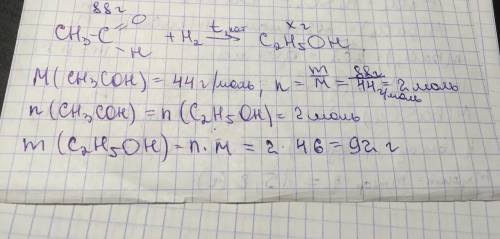 88г t, кат x г
CH₃-C =O -H + H₂ → C₂H₅OH
M(CH₃COH) = 44 г/моль, n = m/M = 88г/44г/моль = 2 моль
n(CH₃COH) = n(C₂H₅OH) = 2 моль
m(C₂H₅OH) = n·M = 2·46 = 92 г